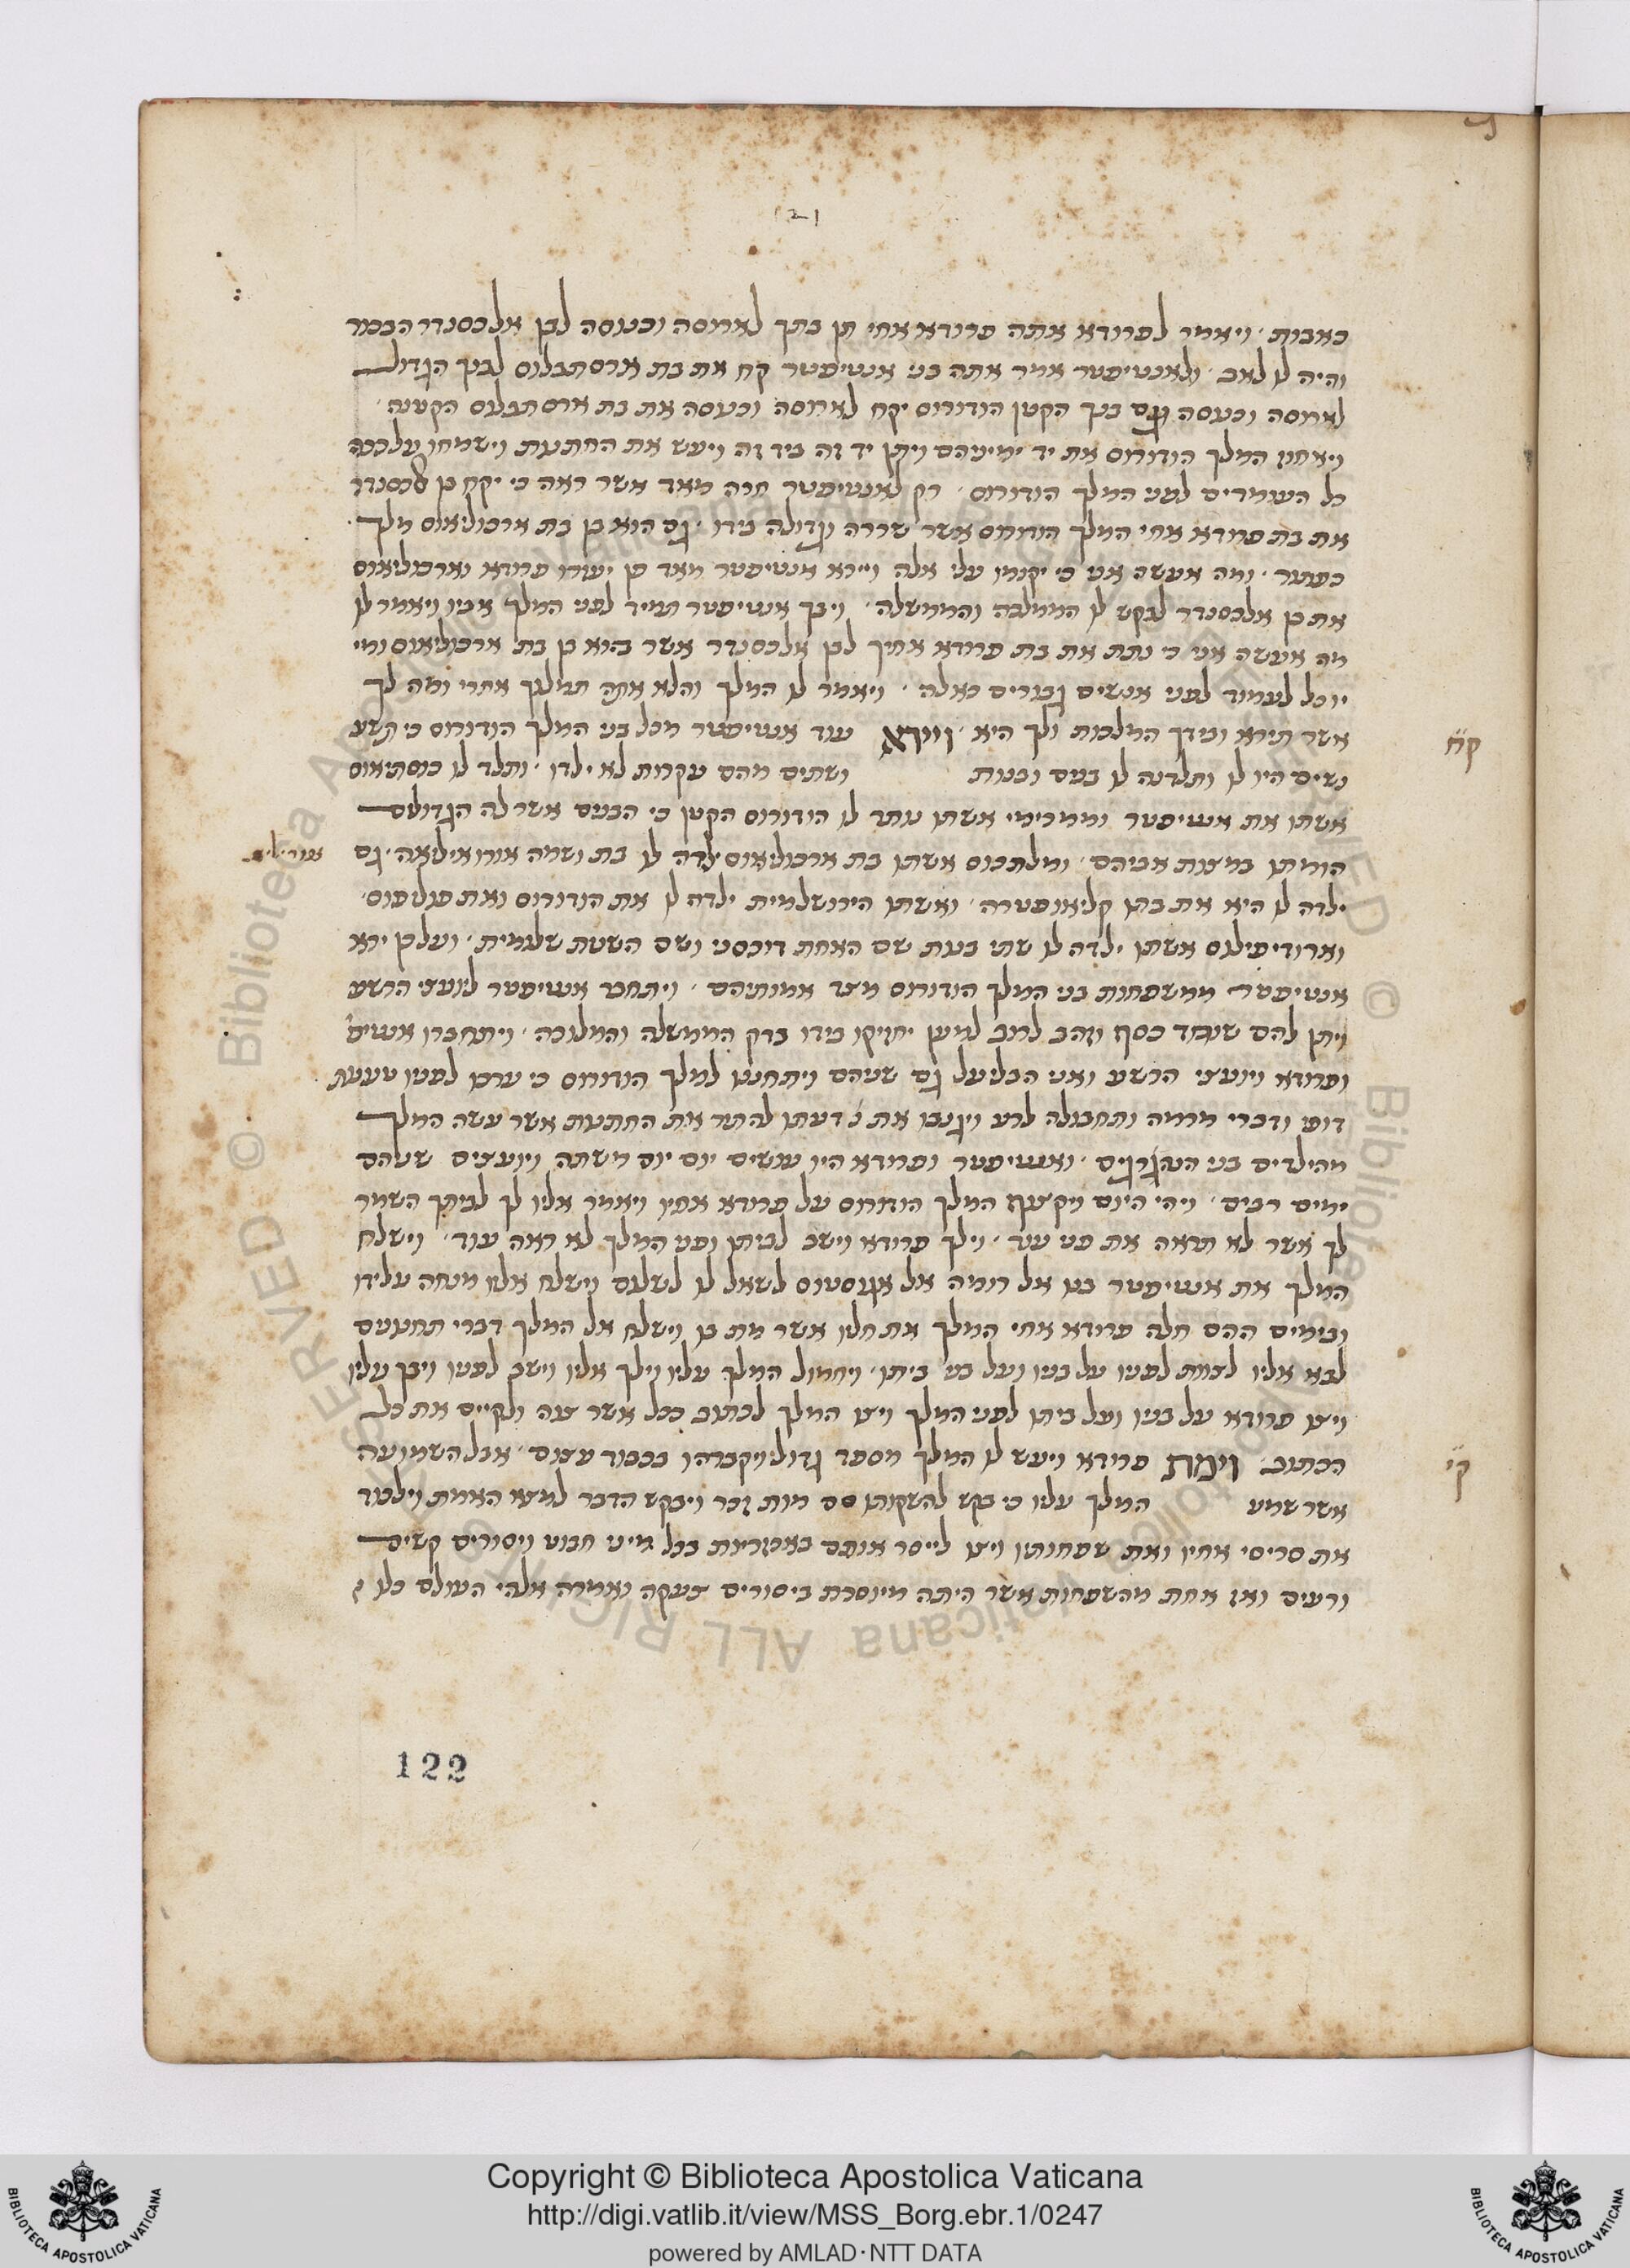 כאבות ויאמר לפרודא אתה פרודא אחי תן בתך לארוסה וכנוסה לבן אלכסנדר הבכור
והיה לו לאב ולאנטיפטר אמר אתה בני אנטיפטר קח את בת ארסתבלוס לבנך הגדול
לארוסה וכנוסה וגם בנך הקטן הורודוס יקח לארוסה וכנוסה את בת ארסתבלוס הקטנה
ויאחוז המלך הורודוס את יד ימיניהם ויתן יד זה ביד זה ויעש את החתנות וישמחו על ככה
כל העומדים לפני המלך הורודוס רק לאנטיפטר חרה מאד אשר ראה כי יקח בן אלכסנדר
את בת פרודא אחי המלך הורודוס אשר שררה וגדולה בידו גם הוא בן בת ארכולאוס מלך
כפתור ומה אעשה אני כי יקומו עלי אלה ויירא אנטיפטר מאד פן יעזרו פרודא וארכולאוס
את בן אלכסנדר לבקש לו הממלכה והממשלה ויבך אנטיפטר תמיד לפני המלך אביו ויאמר לו
מה אעשה אני כי נתת את בת פרודא אחיך לבן אלכסנדר אשר הוא בן בת ארכולאוס ומי
יוכל לעמוד לפני אנשים גבורים כאלה ויאמר לו המלך והלא אתה תמלוך אחרי ומה לך
אשר תירא ובידך המלכות ולך היא ויירא עוד אנטיפטר מכל בני המלך הורודוס כי תשע
קח
נשים היו לו ותלדנה לו בנים ובנות ושתים מהם עקרות לא ילדו ותלד לו
אשתו את אנטיפטר וממרימי אשתו נותר לו הורודוס הקטן כי הבנים אשר לה הגדולים
הומתו במצות אביהם ומלתכוס אשתו בת ארכולאוס ילדה לו בת ושמה גם
ילדה לו היא את בתו קליאופטרה ואשתו הירושלמית ילדה לו את הורודוס ואת פוליפוס
אשתו ילדה לו שתי בנות שם האחת רוכסני ושם השנית שלומית ועל כן ירא
אנטיפטר ממשפחות בני המלך הורודוס מצד אמותיהם ויתחבר אנטיפטר ליועצי הרשע
ויתן להם שוחד כסף וזהב לרוב למען יחזיקו בידו בדק הממשלה והמלוכה ויתחברו אנשים
ופרודא ויועצי הרשע ואנשי הבליעל גם שניהם ויתחננו למלך הורודוס כי ערכו לפניו טענות
דופי ודברי מרמה ותחבולה לרע ויגנבו את דעתו להתיר את החתנות אשר עשה המלך
מהילדים בני ההרוגים ואנטיפטר ופרודא היו עושים יום יום משתה ויועצים שניהם
ימים רבים ויהי היום ויקצוף המלך הורודוס על פרודא אחיו ויאמר אליו לך לביתך השמר
לך אשר לא תראה את פני עוד וילך פרודא וישב לביתו ופני המלך לא ראה עוד וישלח
המלך את אנטיפטר בנו אל רומה אל אגוסטוס לשאל לו לשלום וישלח אליו מנחה על ידו
ובימים ההם חלה פרודא אחי המלך את חליו אשר מת בו וישלח אל המלך דברי תחנונים
לבא אליו לצוות לפניו על בניו ועל בני ביתו ויחמול המלך עליו וילך אליו וישב לפניו ויבך עליו
ויצו פרודא על בניו ועל ביתו לפני המלך ויצו המלך לכתוב ככל אשר צוה ולקיים את כל
הכתוב וימת פרודא ויעש לו המלך מספד גדול ויקברהו בכבוד עצום אבל השמועה
קי
אשר שמע המלך עליו כי בקש להשקותו סם מות זכר ויבקש הדבר למצוא האמת וילכוד
את סריסי אחיו ואת שפחותיו ויצו לייסר אותם באכזריות בכל מיני חבוט ויסורים קשים
ורעים ואז אחת מהשפחות אשר היתה מיוסרת ביסורים צעקה ואמרה אלהי העולם כלו
122
Copyright © Biblioteca Apostolica Vaticana
http://digi.vatlib.it/view/MSS_Borg.ebr.1/0247
powered by AMLAD·NTT DATA
BIBLIOTECA APOSTOLICA VATICANA
BIBLIOTECA APOSTOLICA VATICANA